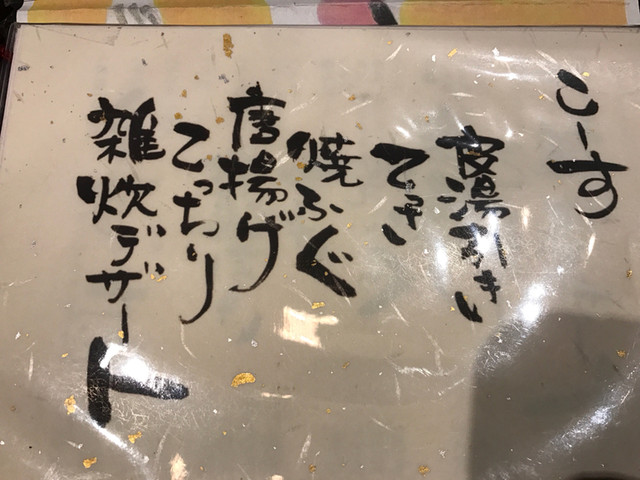 こーす
皮湯引き
てっさ
焼ふぐ
唐揚げ
てっちり
雑炊デザート